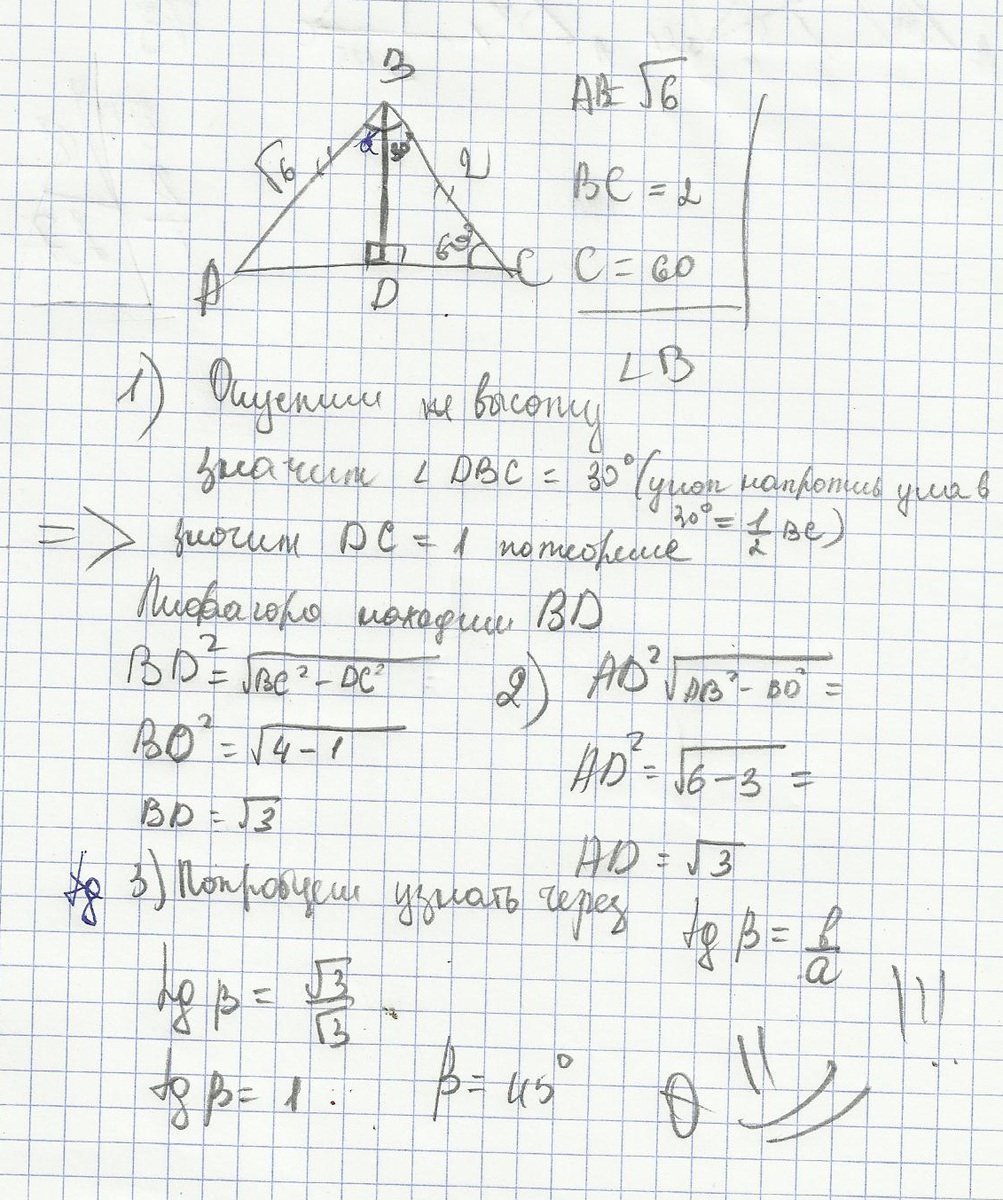 B
AB=√6
√6 α 30° 2
BC = 2
60°
A D C
C = 60
∠B
1) Опустим высоту
значит ∠ DBC = 30° (угол напротив угла в
30° = 1/2 BC)
=> значит DC = 1 по теореме
Пифагора находим BD
BD² = √BC² - DC²
2) AD² √AB² - BD² =
BD² = √4 - 1
AD² = √6 - 3 =
BD = √3
AD = √3
tg 3) Попробуем узнать через
tg β = b/a
tg β = √3/√3
tg β = 1 β = 45°